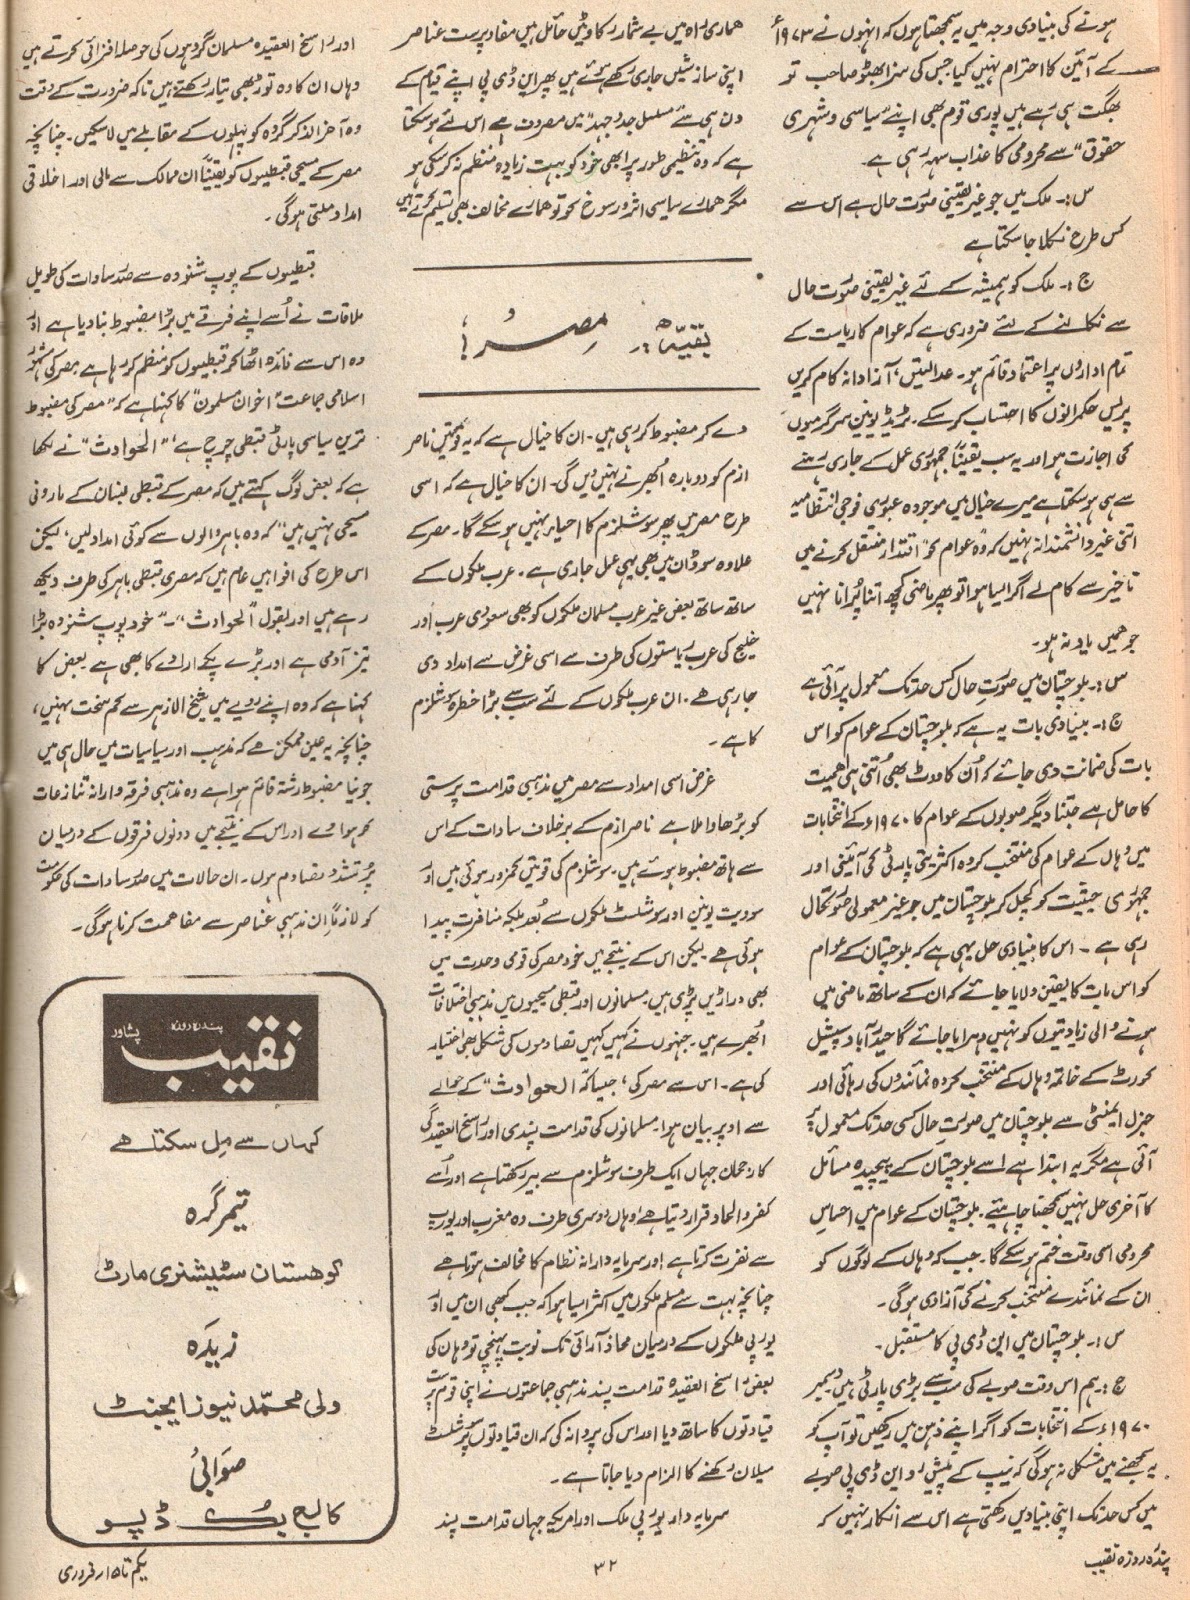 ہونے کی بنیادی وجہ میں یہ سمجھتا ہوں کہ انہوں نے ۱۹۷۳ء
کے آئین کا احترام نہیں کیا جس کی سزا بھٹو صاحب تو
بھگت ہی رہے ہیں پوری قوم بھی اپنے سیاسی و شہری
حقوق" سے محرومی کا عذاب سہہ رہی ہے۔
س:۔ ملک میں جو غیر یقینی صورت حال ہے اس سے
کس طرح نکلا جا سکتا ہے
ج:۔ ملک کو ہمیشہ کے لئے غیر یقینی صورت حال
سے نکالنے کے لئے ضروری ہے کہ عوام کا ریاست کے
تمام اداروں پر اعتماد قائم ہو۔ عدالتیں آزادانہ کام کریں
پریس حکمرانوں کا احتساب کر سکے۔ ٹریڈ یونین سرگرمیوں
کی اجازت ہو اور یہ سب یقیناً جمہوری عمل کے جاری رہنے
سے ہی ہو سکتا ہے میرے خیال میں موجودہ عبوری فوجی انتظامیہ
اتنی غیر دانشمندانہ نہیں کہ وہ عوام کو اقتدار منتقل کرنے میں
تاخیر سے کام لے اگر ایسا ہوا تو پھر ماضی کچھ اتنا پُرانا نہیں
جو ہمیں یاد نہ ہو۔
س:۔ بلوچستان میں صورتِ حال کس حد تک معمول پر آئی ہے
ج:۔ بنیادی بات یہ ہے کہ بلوچستان کے عوام کو اس
بات کی ضمانت دی جائے کہ اُن کا ووٹ بھی اُتنی ہی اہمیت
کا حامل ہے جتنا دیگر صوبوں کے عوام کا ۱۹۷۰ء کے انتخابات
میں وہاں کے عوام کی منتخب کردہ اکثریتی پارٹی کی آئینی اور
جمہوری حیثیت کو کچل کر بلوچستان میں جو غیر معمولی صورتحال
رہی ہے۔ اس کا بنیادی حل یہی ہے کہ بلوچستان کے عوام
کو اس بات کا یقین دلایا جائے کہ ان کے ساتھ ماضی میں
ہونے والی زیادتیوں کو نہیں دہرایا جائے گا حیدرآباد سپیشل
کورٹ کے خاتمہ وہاں کے منتخب کردہ نمائندوں کی رہائی اور
جنرل ایمنسٹی سے بلوچستان میں صورتِ حال کسی حد تک معمول پر
آئی ہے مگر یہ ابتدا ہے اسے بلوچستان کے پیچیدہ مسائل
کا آخری حل نہیں سمجھنا چاہیئے۔ بلوچستان کے عوام میں احساس
محرومی اسی وقت ختم ہو سکے گا۔ جب کہ وہاں کے لوگوں کو
ان کے نمائندے منتخب کرنے کی آزادی ہوگی۔
س:۔ بلوچستان میں این ڈی پی کا مستقبل۔
ج:۔ ہم اس وقت صوبے کی سب سے بڑی پارٹی ہیں دسمبر
۱۹۷۰ء کے انتخابات کو اگر اپنے ذہن میں رکھیں تو آپ کو
یہ سمجھنے میں مشکل نہ ہوگی کہ نیپ کے پیش رو این ڈی پی صوبے
میں کس حد تک اپنی بنیادیں رکھتی ہے اس سے انکار نہیں کہ
ہماری راہ میں بے شمار رکاوٹیں حائل ہیں مفاد پرست عناصر
اپنی سازشیں جاری رکھے ہوئے ہیں پھر این ڈی پی اپنے قیام کے
دن ہی سے مسلسل جدوجہد میں مصروف ہے اس لئے ہو سکتا
ہے کہ وہ تنظیمی طور پر ابھی خود کو بہت زیادہ منظم نہ کر سکی ہو
مگر ہمارے سیاسی اثر و رسوخ کو تو ہمارے مخالف بھی تسلیم کرتے ہیں
بقیہ:۔ مِصر!
دے کر مضبوط کر رہی ہیں۔ ان کا خیال ہے کہ یہ قوتیں ناصر
ازم کو دوبارہ اُبھرنے نہیں دیں گی۔ ان کا خیال ہے کہ اسی
طرح مصر میں پھر سوشلزم کا احیاء نہیں ہو سکے گا۔ مصر کے
علاوہ سوڈان میں بھی یہی عمل جاری ہے۔ عرب ملکوں کے
ساتھ ساتھ بعض غیر عرب مسلمان ملکوں کو بھی سعودی عرب اور
خلیج کی عرب ریاستوں کی طرف سے اسی غرض سے امداد دی
جا رہی ہے۔ ان عرب ملکوں کے لئے سب سے بڑا خطرہ سوشلزم
کا ہے۔
غرض اسی امداد سے مصر میں مذہبی قدامت پرستی
کو بڑھاوا ملا ہے ناصر ازم کے برخلاف سادات کے اس
سے ہاتھ مضبوط ہوئے ہیں۔ سوشلزم کی قوتیں کمزور ہوئی ہیں اور
سوویت یونین اور سوشلسٹ ملکوں سے بُعد بلکہ منافرت پیدا
ہوئی ہے لیکن اس کے نتیجے میں خود مصر کی قومی وحدت میں
بھی دراڑیں پڑی ہیں۔ مسلمانوں اور قبطی مسیحیوں میں مذہبی اختلافات
اُبھرے ہیں۔ جنہوں نے کہیں کہیں تصادموں کی شکل بھی اختیار
کی ہے۔ اس سے مصر کی، جیسا کہ "الحوادث" کے حوالے
سے اوپر بیان ہوا۔ مسلمانوں کی قدامت پسندی اور راسخ العقیدگی
کا رجحان جہاں ایک طرف سوشلزم سے بیر رکھتا ہے اور اُسے
کفر و الحاد قرار دیتا ہے وہاں دوسری طرف وہ مغرب اور یورپ
سے نفرت کرتا ہے اور سرمایہ دارانہ نظام کا مخالف ہوتا ہے
چنانچہ بہت سے مسلم ملکوں میں اکثر ایسا ہوا کہ جب کبھی ان میں اور
یورپی ملکوں کے درمیان محاذ آرائی تک نوبت پہنچی تو وہاں کی
بعض راسخ العقیدہ قدامت پسند مذہبی جماعتوں نے اپنی قوم پرست
قیادتوں کا ساتھ دیا اور اس کی پروا نہ کی کہ ان قیادتوں پر سوشلسٹ
میلان رکھنے کا الزام دیا جاتا ہے۔
سرمایہ دار یورپی ملک اور امریکہ جہاں قدامت پسند
اور راسخ العقیدہ مسلمان گروہوں کی حوصلہ افزائی کرتے ہیں
وہاں ان کا وہ توڑ بھی تیار رکھتے ہیں تاکہ ضرورت کے وقت
وہ آخر الذکر گروہ کو پہلوں کے مقابلے میں لا سکیں۔ چنانچہ
مصر کے مسیحی قبطیوں کو یقیناً ان ممالک سے مالی اور اخلاقی
امداد ملتی ہوگی۔
قبطیوں کے پوپ شنودہ سے صدر سادات کی طویل
ملاقات نے اُسے اپنے فرقے میں بڑا مضبوط بنا دیا ہے اور
وہ اس سے فائدہ اٹھا کر قبطیوں کو منظم کر رہا ہے مصر کی مشہور
اسلامی جماعت "اخوان مسلمون" کا کہنا ہے کہ "مصر کی مضبوط
ترین سیاسی پارٹی قبطی چرچ ہے" "الحوادث" نے لکھا
ہے کہ بعض لوگ کہتے ہیں کہ مصر کے قبطی لبنان کے مارونی
مسیحی نہیں ہیں" کہ وہ باہر والوں سے کوئی امداد لیں، لیکن
اس طرح کی افواہیں عام ہیں کہ مصری قبطی باہر کی طرف دیکھ
رہے ہیں اور بقول "الحوادث"۔ "خود پوپ شنودہ بڑا
تیز آدمی ہے اور بڑے پکے ارادے کا بھی ہے بعض کا
کہنا ہے کہ وہ اپنے رویے میں شیخ الازہر سے کم سخت نہیں،
چنانچہ یہ عین ممکن ہے کہ مذہب اور سیاسیات میں حال ہی میں
جو نیا مضبوط رشتہ قائم ہوا ہے وہ مذہبی فرقہ وارانہ تنازعات
کو ہوا دے اور اس کے نتیجے میں دونوں فرقوں کے درمیان
پُر تشدد تصادم ہوں۔ ان حالات میں صدر سادات کی حکومت
کو لازماً ان مذہبی عناصر سے مفاہمت کرنا ہوگی۔
پندرہ روزہ
نقیب
پشاور
کہاں سے مِل سکتا ہے
تیمر گرہ
کوہستان سٹیشنری مارٹ
زیدہ
ولی محمّد نیوز ایجنٹ
صوابی
کالج بُک ڈپو
پندرہ روزہ نقیب
۳۲
یکم تا ۱۵ر فروری